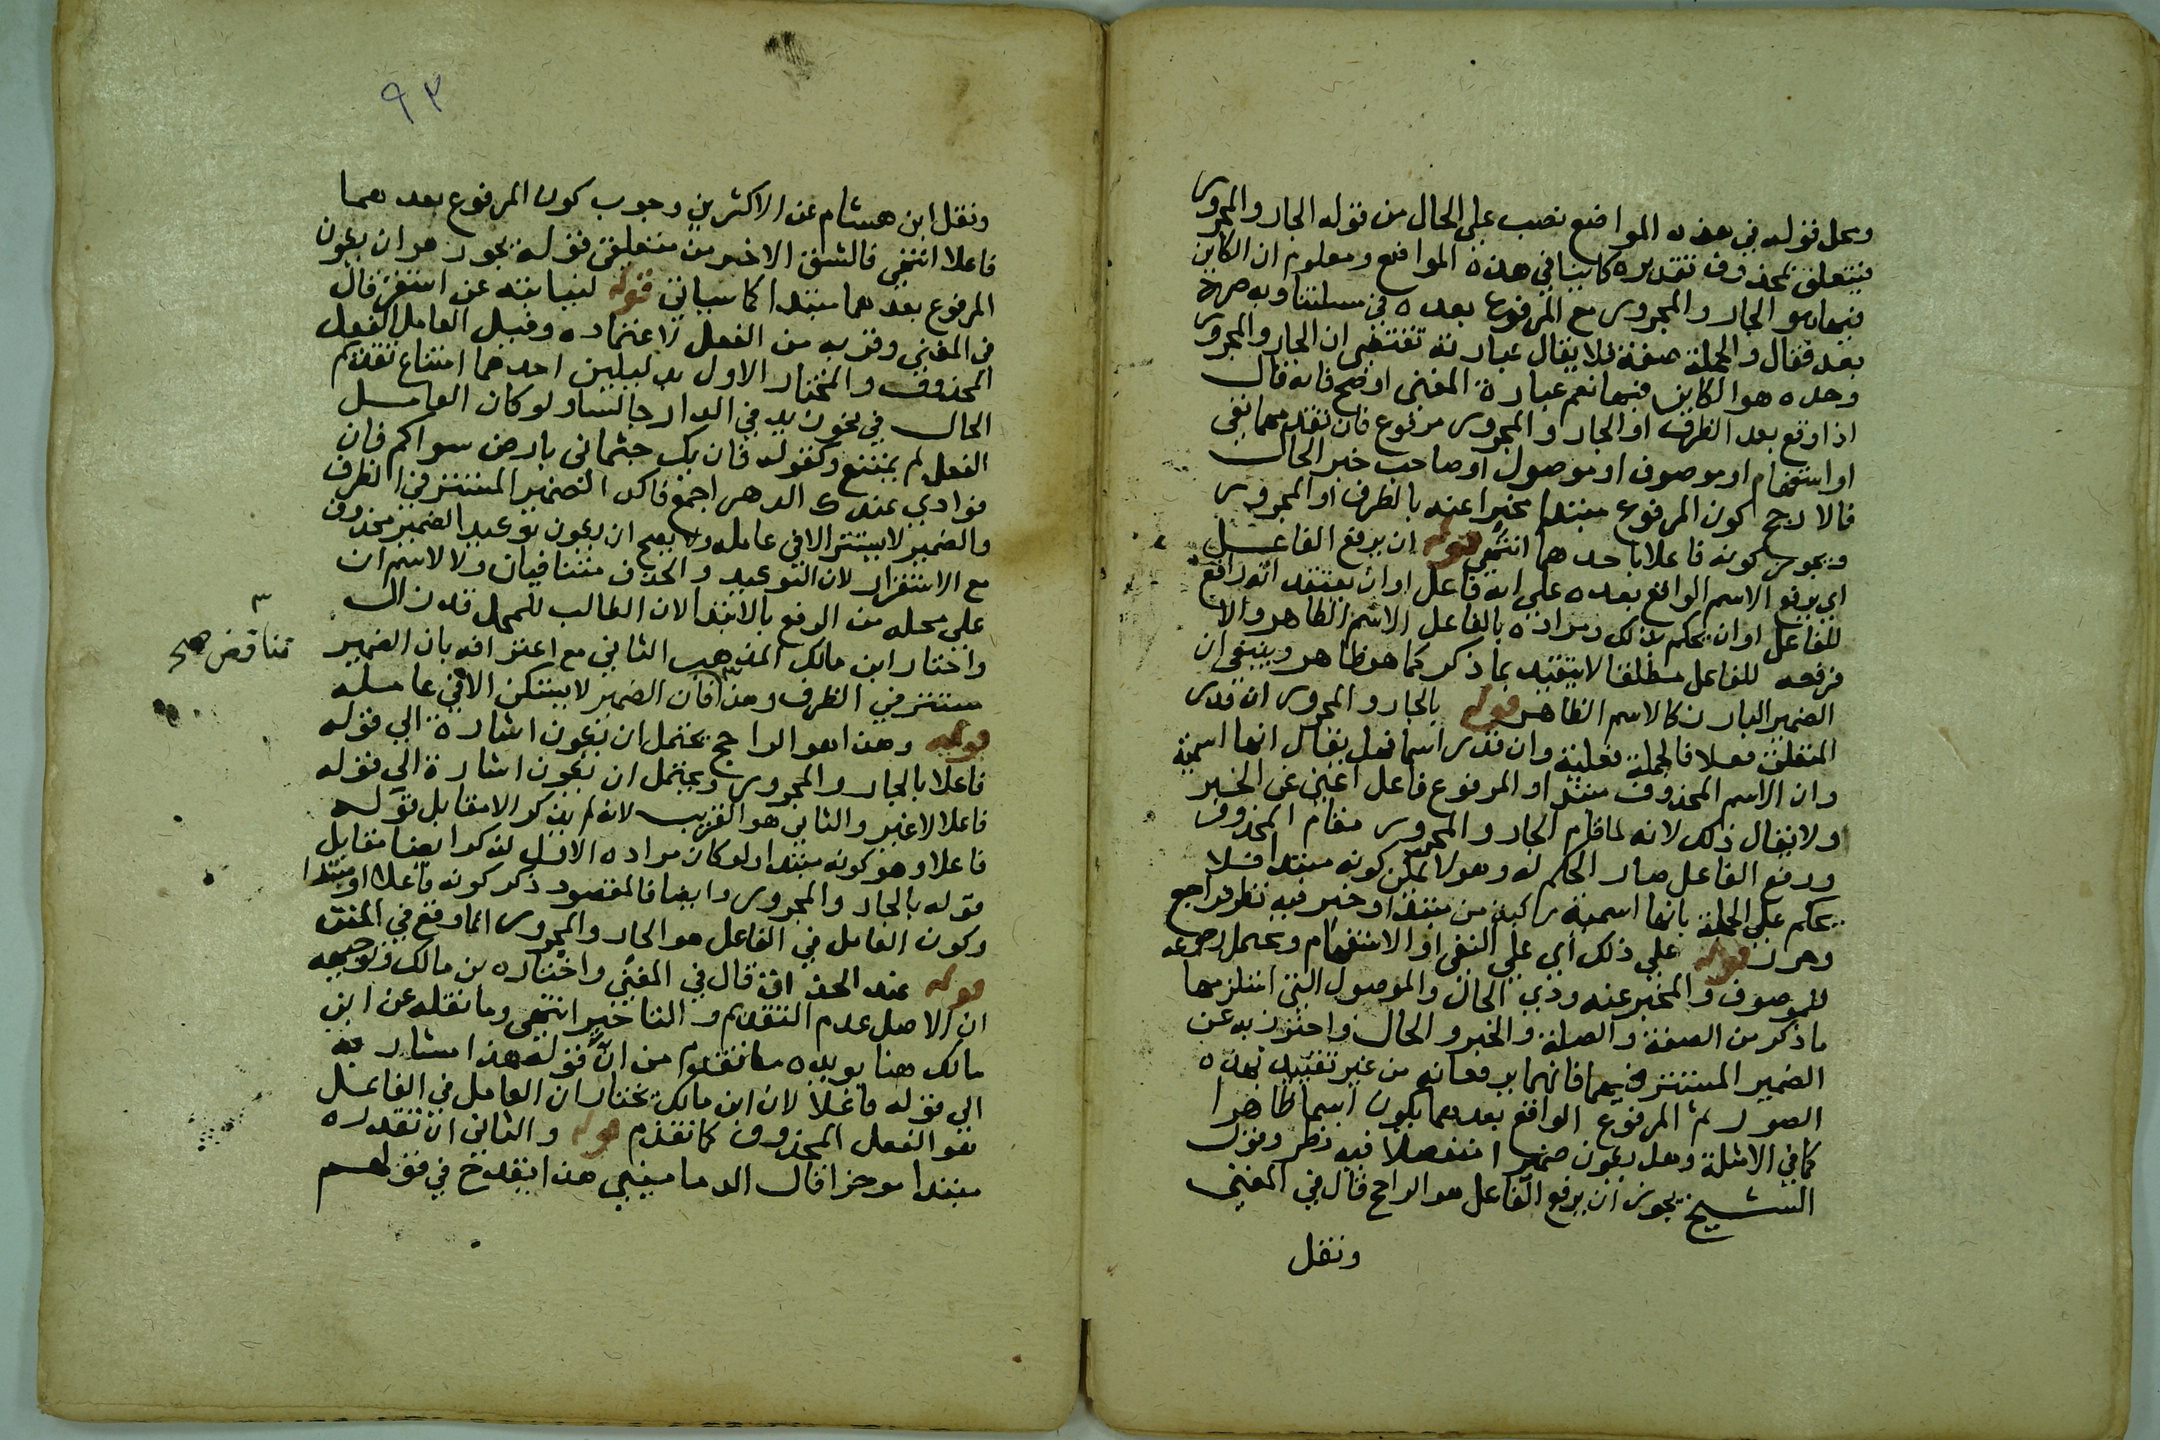 ومحل قوله في هذه المواضع نصب على الحال من قوله الجار والمجرور
فيتعلق بمحذوف تقديره كاينا في هذه المواضع ومعلوم ان الكاين
فيها هو الجار والمجرور مع المرفوع بعده في مسلتنا وبه صرح
بعد فقال والجملة صفة فلا يقال عبارته تقتضى ان الجار والمجرور
وحده هو الكاين فيها نعم عبارة المغنى اوضح فانه قال
اذا وقع بعد الظرف او الجار والمجرور مرفوع فان تقدمهما نفى
او استفهام او موصوف او موصول او صاحب خبر او حال
فالارجح كون المرفوع مبتدا مخبرا عنه بالظرف او المجرور
ويجوز كونه فاعلا باحدهما انتهى قوله ان يرفع الفاعل
اي يرفع الاسم الواقع بعده على انه فاعل او ان يعتقد انه رافع
للفاعل او ان يحكم بذلك ومراده بالفاعل الاسم الظاهر والا
فرفعه للفاعل مطلقا لا يتقيد بما ذكر كما هو ظاهر وينبغى ان
الضمير البارز كالاسم الظاهر قوله بالجار والمجرور ان قدر
المتعلق فعلا فالجملة فعلية وان قدر اسما فهل يقال انها اسمية
وان الاسم المحذوف مبتدا والمرفوع فاعل اغنى عن الخبر
ولا يقال ذلك لانه لما قام الجار والمجرور مقام المحذوف
ورفع الفاعل صار الحكم له وهو لا يمكن كونه مبتدا فلا
يحكم على الجملة بانها اسمية مركبة من مبتدا وخبر فيه نظر فراجع
وحرر قوله على ذلك أي على النفى او الاستفهام ويحتمل رجوعه
للموصوف والمخبر عنه وذي الحال والموصول التى استلزمها
ما ذكر من الصفة والصلة والخبر والحال واحترز به عن
الضمير المستتر فيهما فانهما يرفعانه من غير تقييد بهذه
الصور ثم المرفوع الواقع بعدهما يكون اسما ظاهرا
كما في الامثلة وهل يكون ضميرا منفصلا فيه نظر وقول
الشيخ يجوز ان يرفع الفاعل هو الراجح قال في المغني
ونقل
٩٣
ونقل ابن هشام عن الاكثرين وجوب كون المرفوع بعدهما
فاعلا انتهى فالشق الاخير من متعلق قوله يجوز هو ان يكون
المرفوع بعدهما مبتدا كما سياتى قوله لنيابته عن استقر قال
في المغني وقربه من الفعل لاعتماده وقيل العامل الفعل
المحذوف والمختار الاول بدليلين احدهما امتناع تقديم
الحال في نحو زيد في الدار جالسا ولو كان العامل
الفعل لم يمتنع وكقوله فان يك جثمانى بارض سواكم فان
فوادي عندك الدهر اجمع فاكد الضمير المستتر في الظرف
والضمير لا يستتر الا في عامله ولا يصح ان يكون توكيد الضمير محذوف
مع الاستقرار لان التوكيد والحذف متنافيان ولا لاسم ان
على محله من الرفع بالابتدا لان الطالب للمحل قد زال
واختار ابن مالك المذهب الثاني مع اعترافه بان الضمير
مستتر في الظرف وهذا فان الضمير لا يستكن الا في عامله
٣
تناقض صح
قوله وهذا هو الراجح يحتمل ان يكون اشارة الى قوله
فاعلا بالجار والمجرور ويحتمل ان يكون اشارة الى قوله
فاعلا لا غير والثانى هو القريب لانه لم يذكر الا مقابل قوله
فاعلا وهو كونه مبتدا ولو كان مراده الاول لذكر ايضا مقابل
قوله بالجار والمجرور وايضا فالمقصود ذكر كونه فاعلا او مبتدا
وكون العامل في الفاعل هو الجار والمجرور انما وقع في المتن
قوله عند الحذاق قال في المغني واختاره بن مالك وتوجيهه
ان الاصل عدم التقديم والتاخير انتهى وما نقله عن ابن
مالك هنا يويده ما تقدم من ان قوله هذا مشار به
الى قوله فاعلا لان ابن مالك يختار ان العامل في الفاعل
هو الفعل المحذوف كما تقدم قوله والثانى ان تقدره
مبتدا موخرا قال الدمامينى هذا يقدح في قولهم